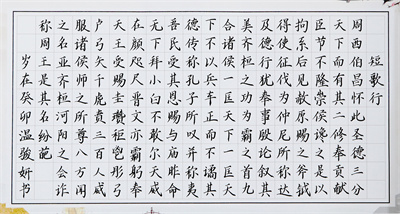 短歌行
周西伯昌怀此圣德三分
天下而有其二修奉贡献
臣节不隆崇侯谗之是以
拘系后见赦原赐之斧钺
得使征伐为仲尼所称达
及德行犹奉事殷论叙其
美齐桓之功为霸之首九
合诸侯一匡天下一匡天
下不以兵车正而不谲其
德传称孔子所叹并称夷
吾民受其恩赐与庙胙命
无下拜小白不敢尔天威
在颜咫尺晋文亦霸躬奉
天王受赐圭瓒秬鬯彤弓
卢弓矢千虎贲三百人威
服诸侯师之所尊八方闻
之名亚齐桓河阳之会诈
称周王是其名纷葩
岁在癸卯温骏妍书